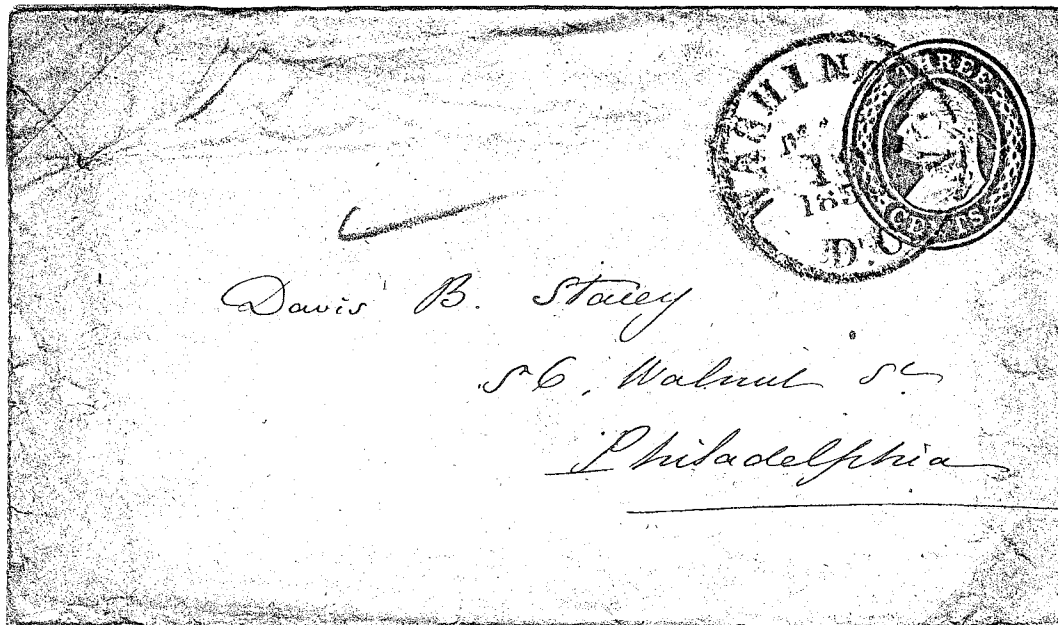 WASHIN
THREE
CENTS
185
D.C.
Davis B. Stacey
56, Walnut St
Philadelphia